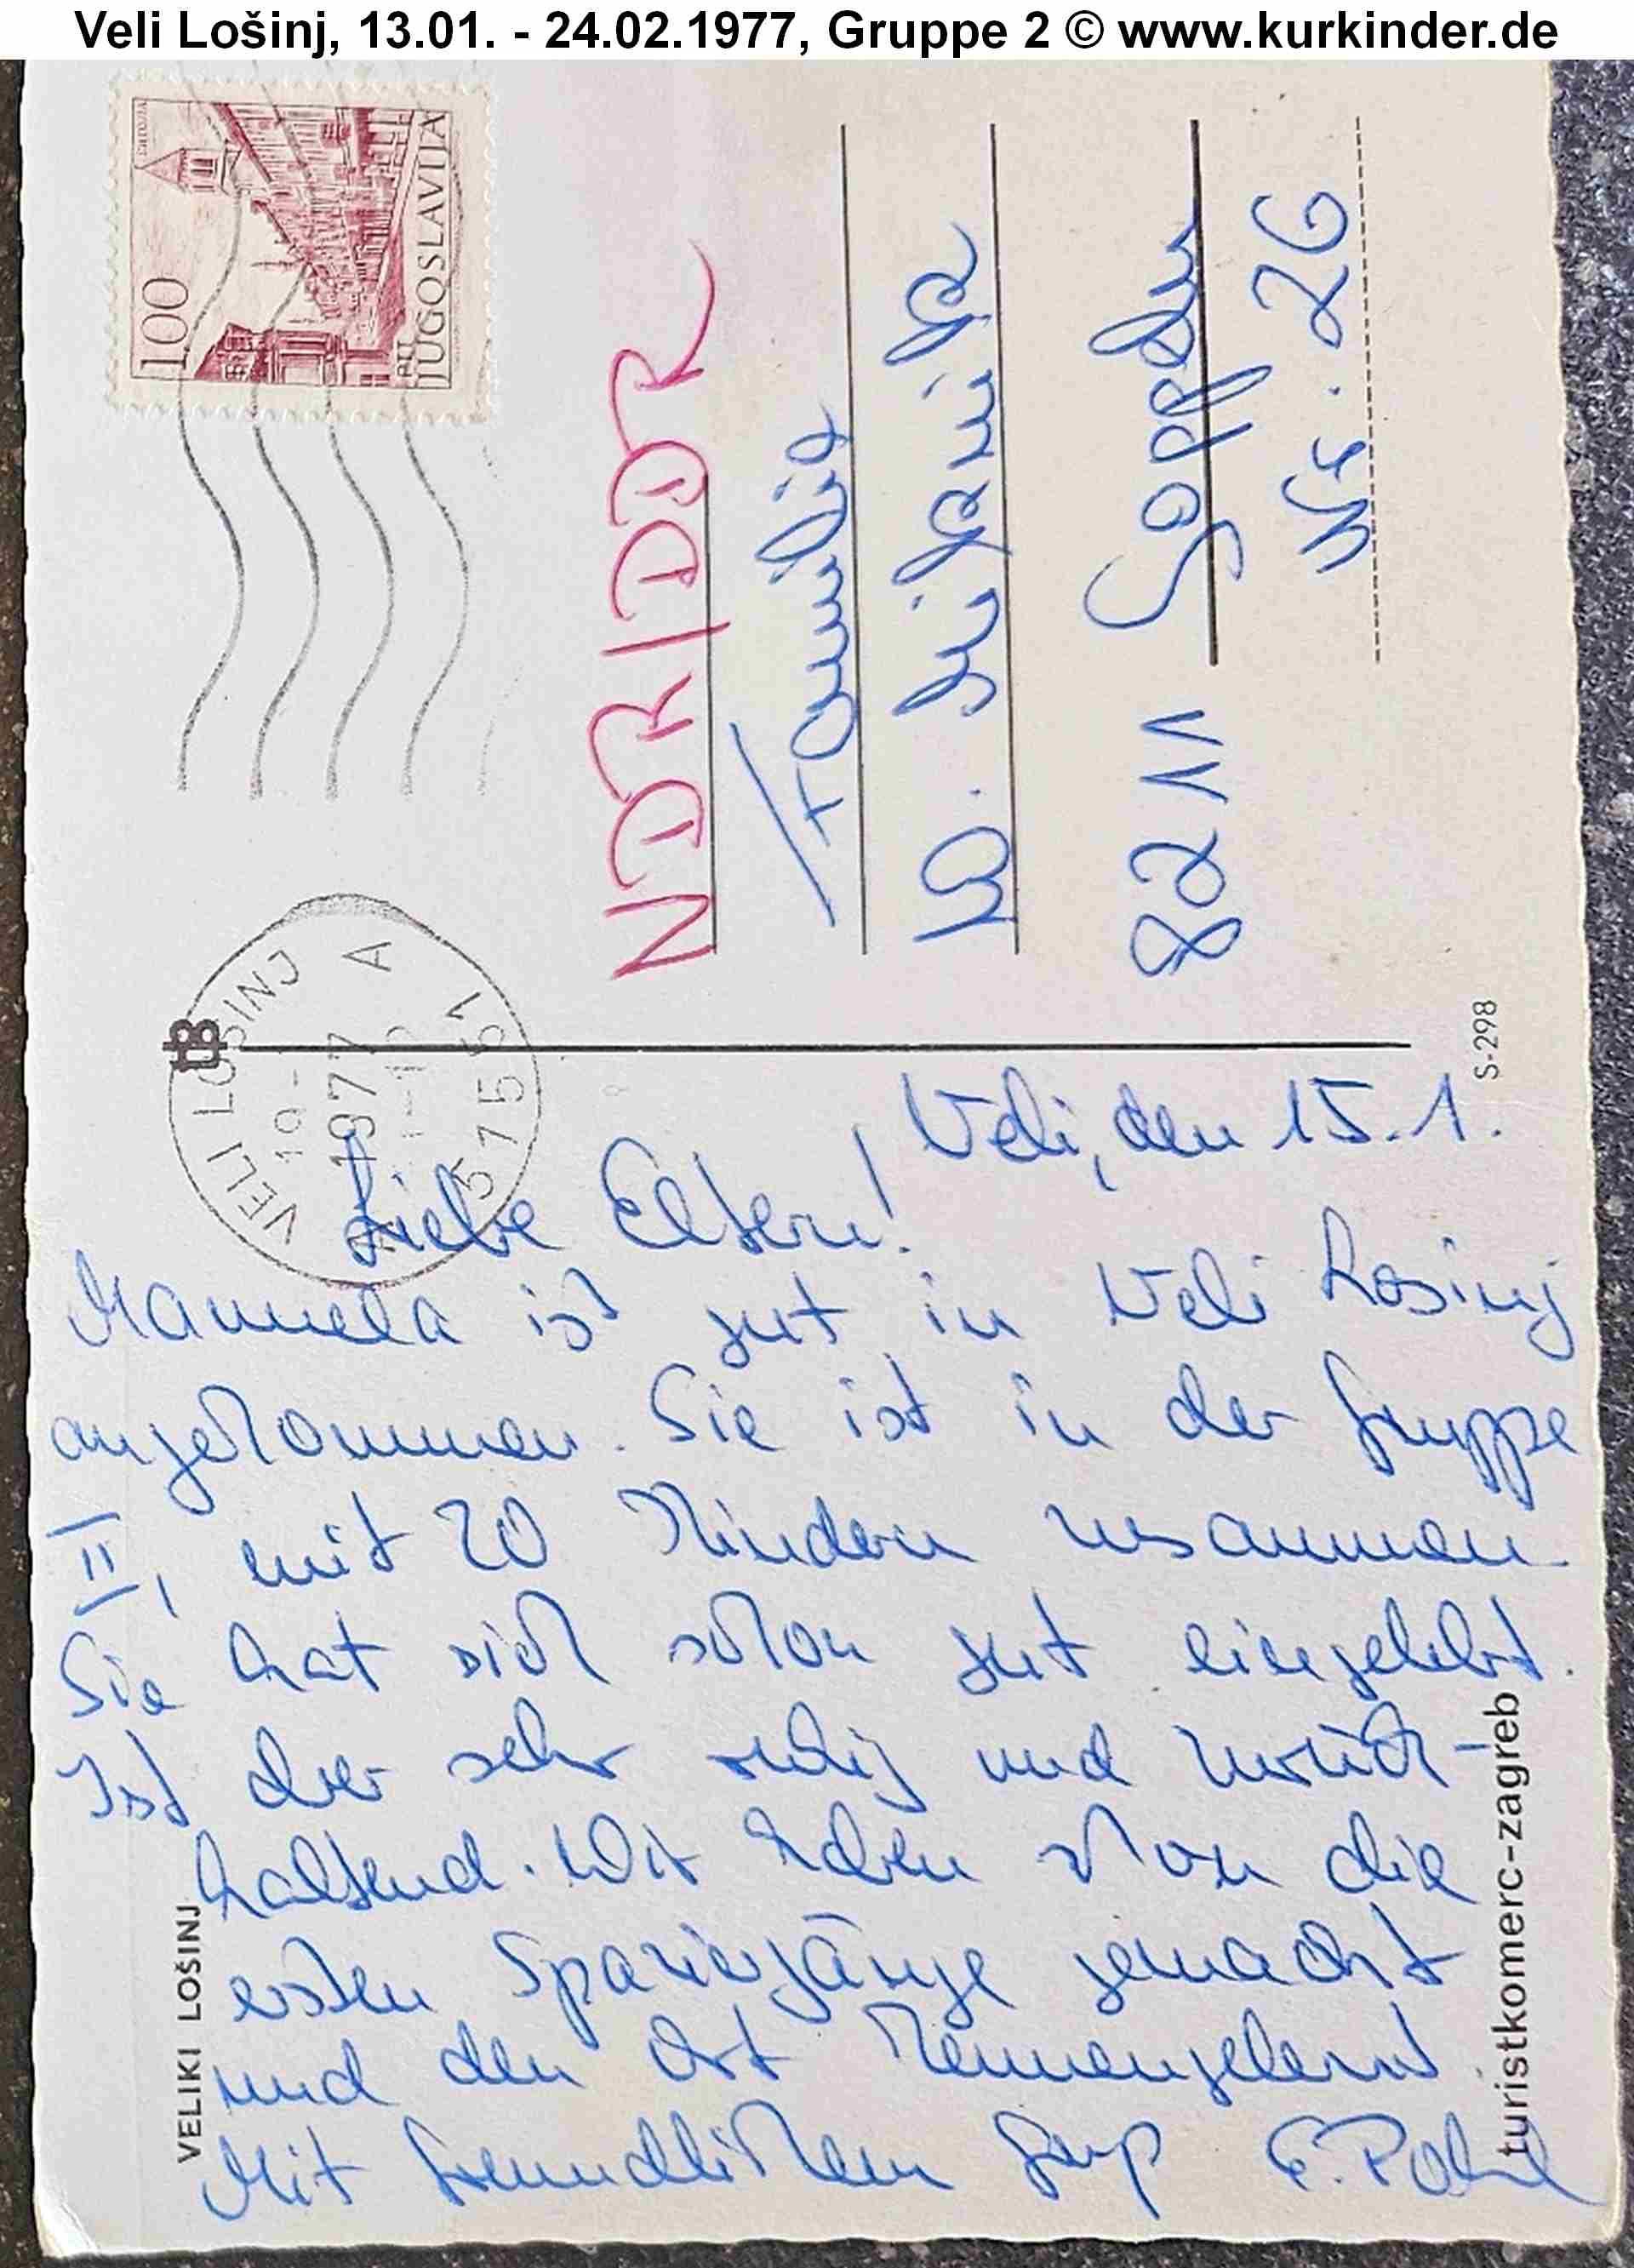 Veli Lošinj, 13.01. - 24.02.1977, Gruppe 2 © www.kurkinder.de
100
JUGOSLAVIJA
VELI LOŠINJ
19-
1977
A
51551
NDR/DDR
Familie
W.
82 11
Nr. 26
S-298
Veli, den 15.1.
Liebe Eltern!
Manuela ist gut in Veli Losinj
angekommen. Sie ist in der Gruppe
II, mit 20 Kindern zusammen.
Sie hat sich schon gut eingelebt.
Ist aber sehr ruhig und zurück-
haltend. Wir haben schon die
ersten Spaziergänge gemacht
und den Ort kennengelernt.
Mit freundlichem Gruß E. Pohl
VELIKI LOŠINJ
turistkomerc-zagreb